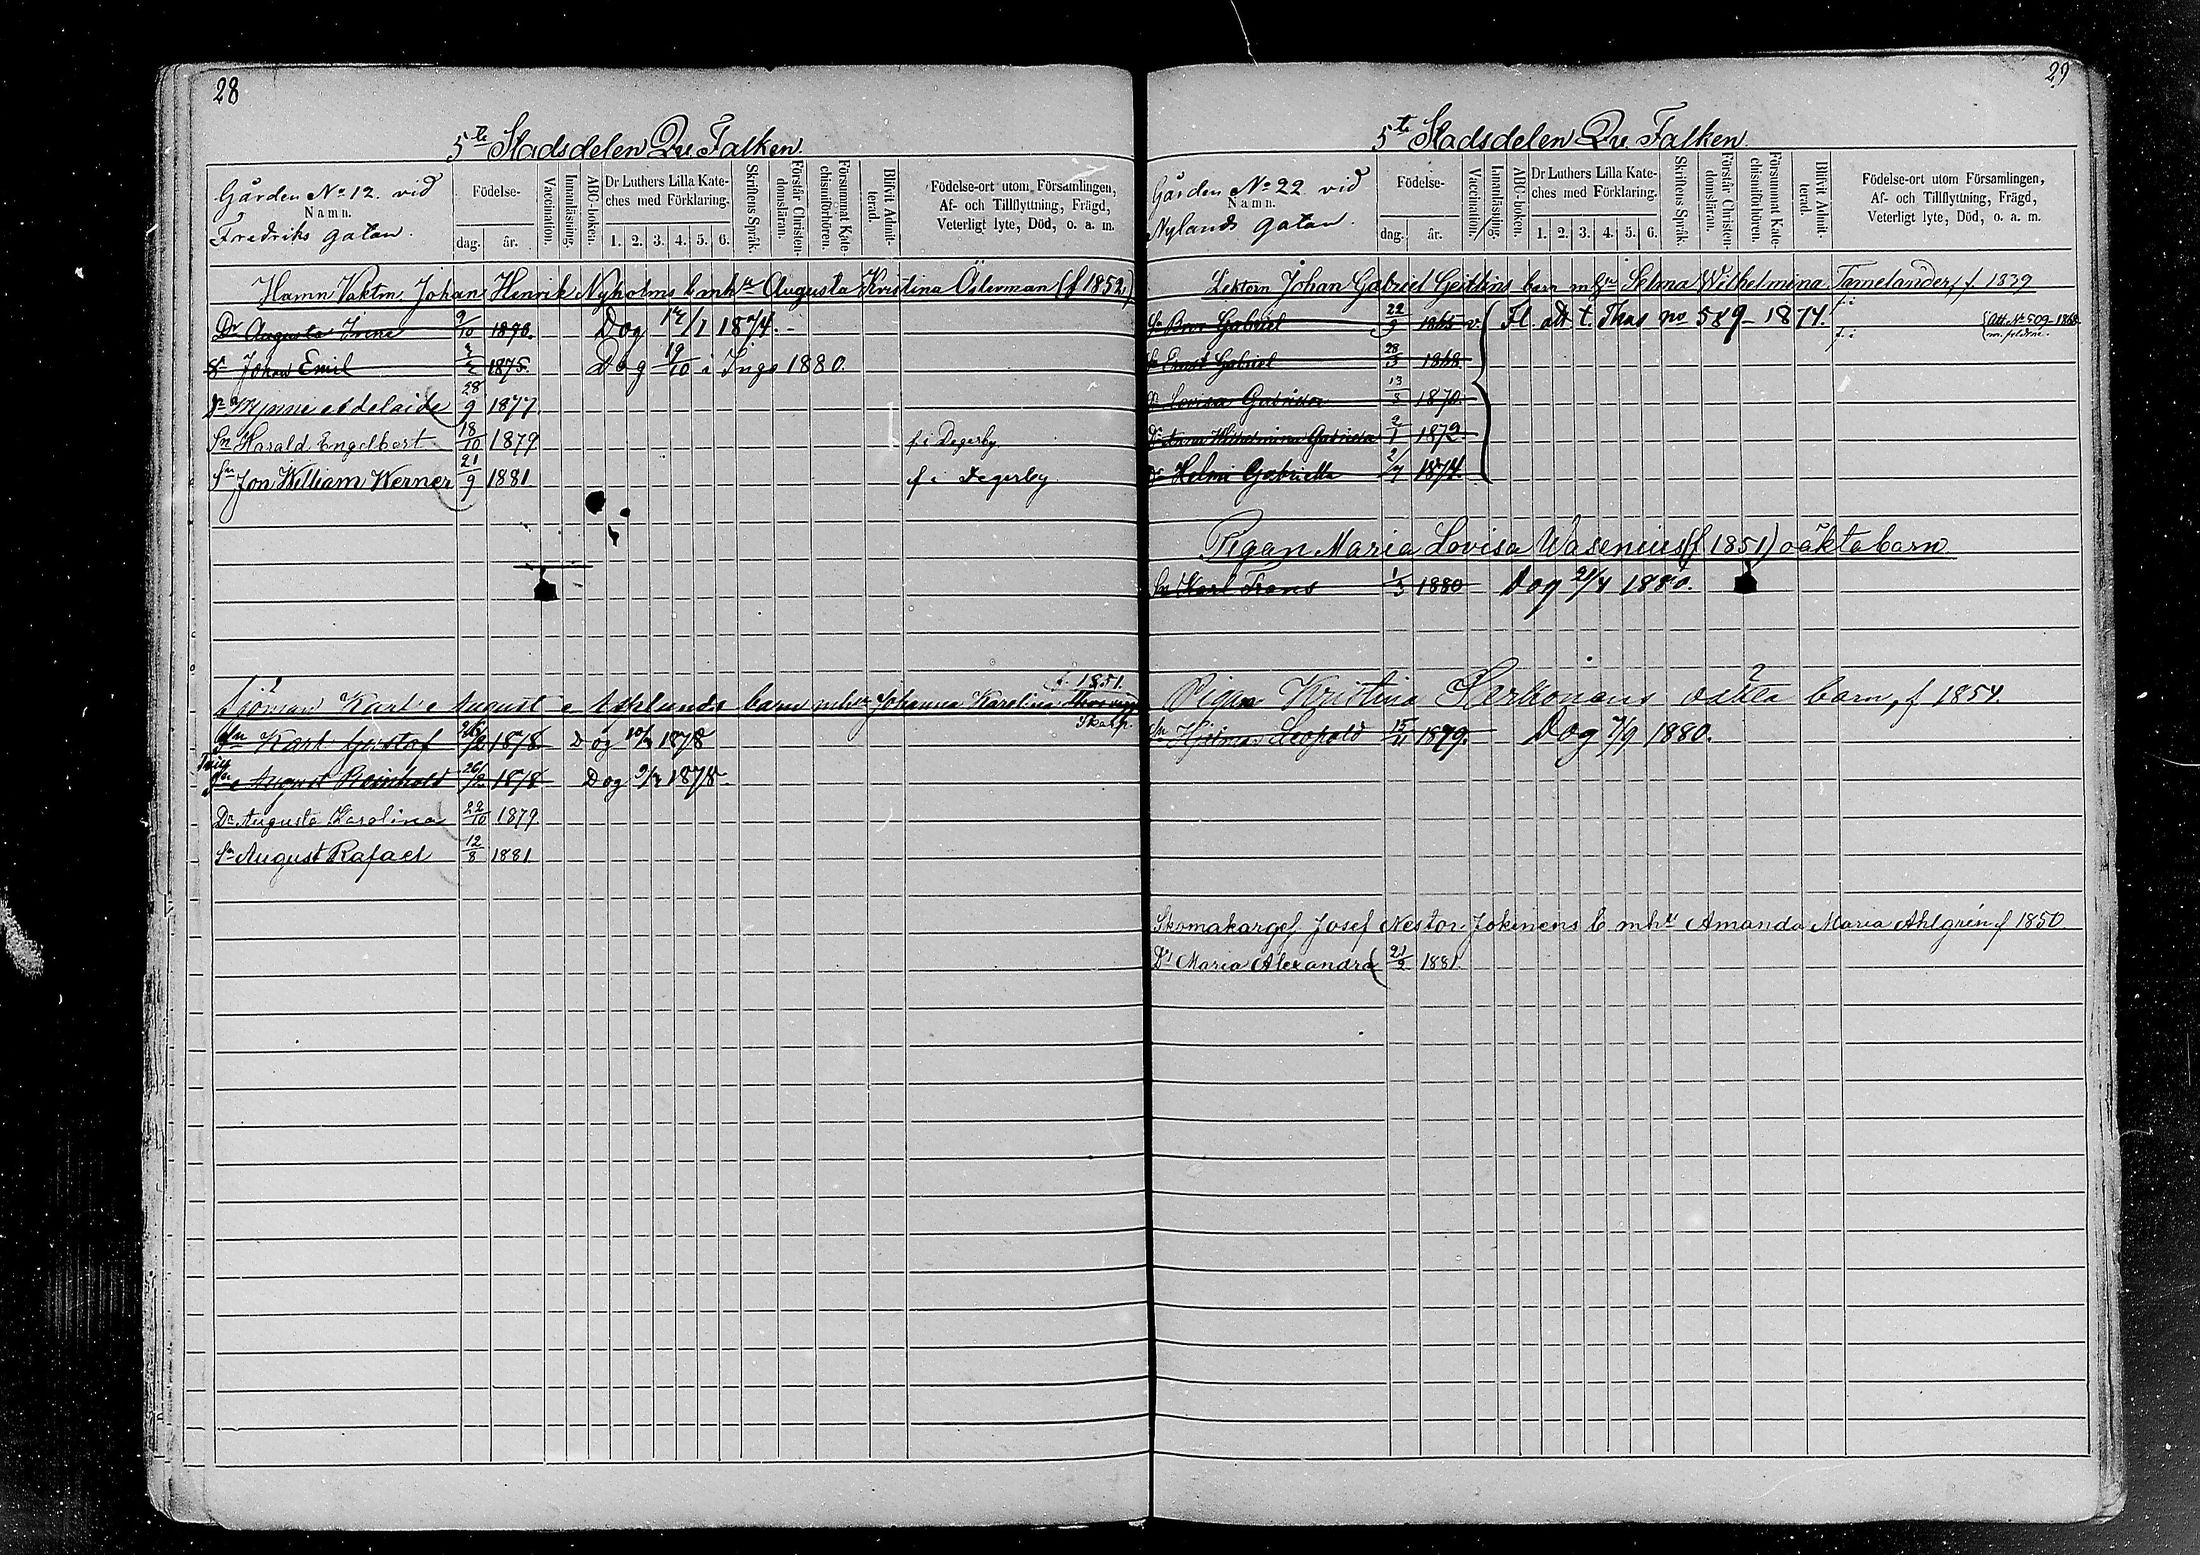 28
5te Stadsdelen Qu Falken
Gården No 12. vid
Namn.
Fredriks gatan.
Födelse-
dag. år.
Vaccination.
Innanläsning.
ABC-boken.
Dr Luthers Lilla Kate-
ches med Förklaring.
1. 2. 3. 4. 5. 6.
Skriftens Språk.
Förstår Christen-
domsläran.
Försummat Kate-
chismiförhören.
Blifvit Admit-
terad.
Födelse-ort utom Församlingen,
Af- och Tillflyttning, Frägd,
Veterligt lyte, Död, o. a. m.
Hamn Vaktm. Johan Henrik Nyholms b. mhu Augusta Kristina Österman (f 1852)
Dr Augusta Irene 9/10 Dog
Sn Johan Emil 1875. Dog 19/10 i Ingo 1880.
Dr Mynni Adelaide 28/9 1877
Sn Harald Engelbert 18/10 1879 f i Degerby
Sn Jon William Werner 21/9 1881 f i Degerby
f 1851.
Sjöman Karl August Asklunds barn mhu Johanna Karolina
Sn Karl Gustaf 26/2 1878 Dog 1878
Sn August Reinhold 26/2 1878 Dog 1878
Dr Augusta Karolina 22/10 1879
Sn August Rafael 12/8 1881
29
5te Stadsdelen Qu Falken
Gården No 22. vid
Namn.
Nylands gatan
Födelse-
dag. år.
Vaccination.
Innanläsning.
ABC-boken.
Dr Luthers Lilla Kate-
ches med Förklaring.
1. 2. 3. 4. 5. 6.
Skriftens Språk.
Förstår Christen-
domsläran.
Försummat Kate-
chismiförhören.
Blifvit Admit-
terad.
Födelse-ort utom Församlingen,
Af- och Tillflyttning, Frägd,
Veterligt lyte, Död, o. a. m.
Lektorn Johan Gabriel Geitlins barn mhu Selma Wilhelmina Tamelander f. 1839
Sn Bror Gabriel 22/9 v. Fl. att t. Thus no 589 - 1874. f. i
f. i Att. No 509 1868
Sn Ernst Gabriel 28 1868
Dr Lovisa Gabriella 13/3 1870
Dr Anna Wilhelmina Gabriela 2/1 1872
Dr Helmi Gabriella 2/7 1874.
Pigan Maria Lovisa Wasenius (f 1851) oäkta barn
Sn Karl Frans 1/3 1880 Dog 21/4 1880.
Pigan Kristina Serkonens oäkta barn, f 1854.
Sn Hjalmar Leopold 15/11 1879. Dog 7/9 1880.
Skomakargef. Josef Nestor Jokinens b. mhu Amanda Maria Ahlgrén f 1850
Dr Maria Alexandra 1881.